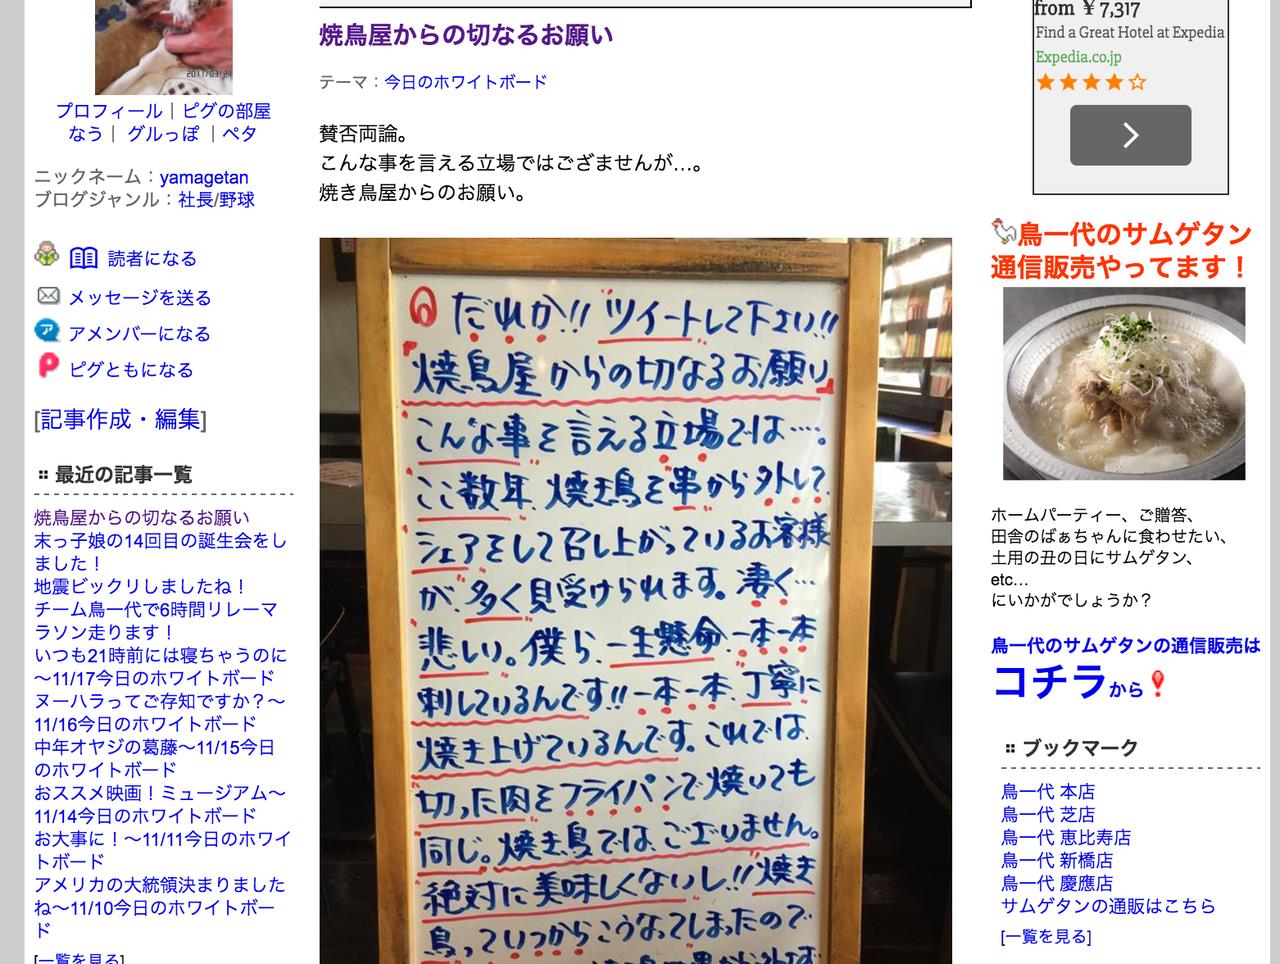 2011/03/21
プロフィール｜ピグの部屋
なう｜ グルっぽ ｜ペタ
ニックネーム：yamagetan
ブログジャンル：社長/野球
読者になる
メッセージを送る
ア
アメンバーになる
ピグともになる
[記事作成・編集]
最近の記事一覧
焼鳥屋からの切なるお願い
末っ子娘の14回目の誕生会をし
ました！
地震ビックリしましたね！
チーム鳥一代で6時間リレーマ
ラソン走ります！
いつも21時前には寝ちゃうのに
～11/17今日のホワイトボード
ヌーハラってご存知ですか？～
11/16今日のホワイトボード
中年オヤジの葛藤～11/15今日
のホワイトボード
おススメ映画！ミュージアム～
11/14今日のホワイトボード
お大事に！～11/11今日のホワイ
トボード
アメリカの大統領決まりました
ね～11/10今日のホワイトボー
ド
[一覧を見る]
焼鳥屋からの切なるお願い
テーマ：今日のホワイトボード
賛否両論。
こんな事を言える立場ではござませんが…。
焼き鳥屋からのお願い。
だれか!! ツイートして下さい!!
焼鳥屋からの切なるお願い
こんな事を言える立場では…。
ここ数年、焼き鳥を串から外して、
シェアをして召し上がっているお客様
が、多く見受けられます。凄く…
悲しい。僕ら、一生懸命、一本一本
刺しているんです!! 一本一本、丁寧に
焼き上げているんです。これでは、
切った肉をフライパンで焼いても
同じ。焼き鳥では、ございません。
絶対に美味しくないし!! 焼き
鳥っていつからこうなってしまったので
from ￥7,317
Find a Great Hotel at Expedia
Expedia.co.jp
鳥一代のサムゲタン
通信販売やってます！
ホームパーティー、ご贈答、
田舎のばぁちゃんに食わせたい、
土用の丑の日にサムゲタン、
etc…
にいかがでしょうか？
鳥一代のサムゲタンの通信販売は
コチラから
ブックマーク
鳥一代 本店
鳥一代 芝店
鳥一代 恵比寿店
鳥一代 新橋店
鳥一代 慶應店
サムゲタンの通販はこちら
[一覧を見る]